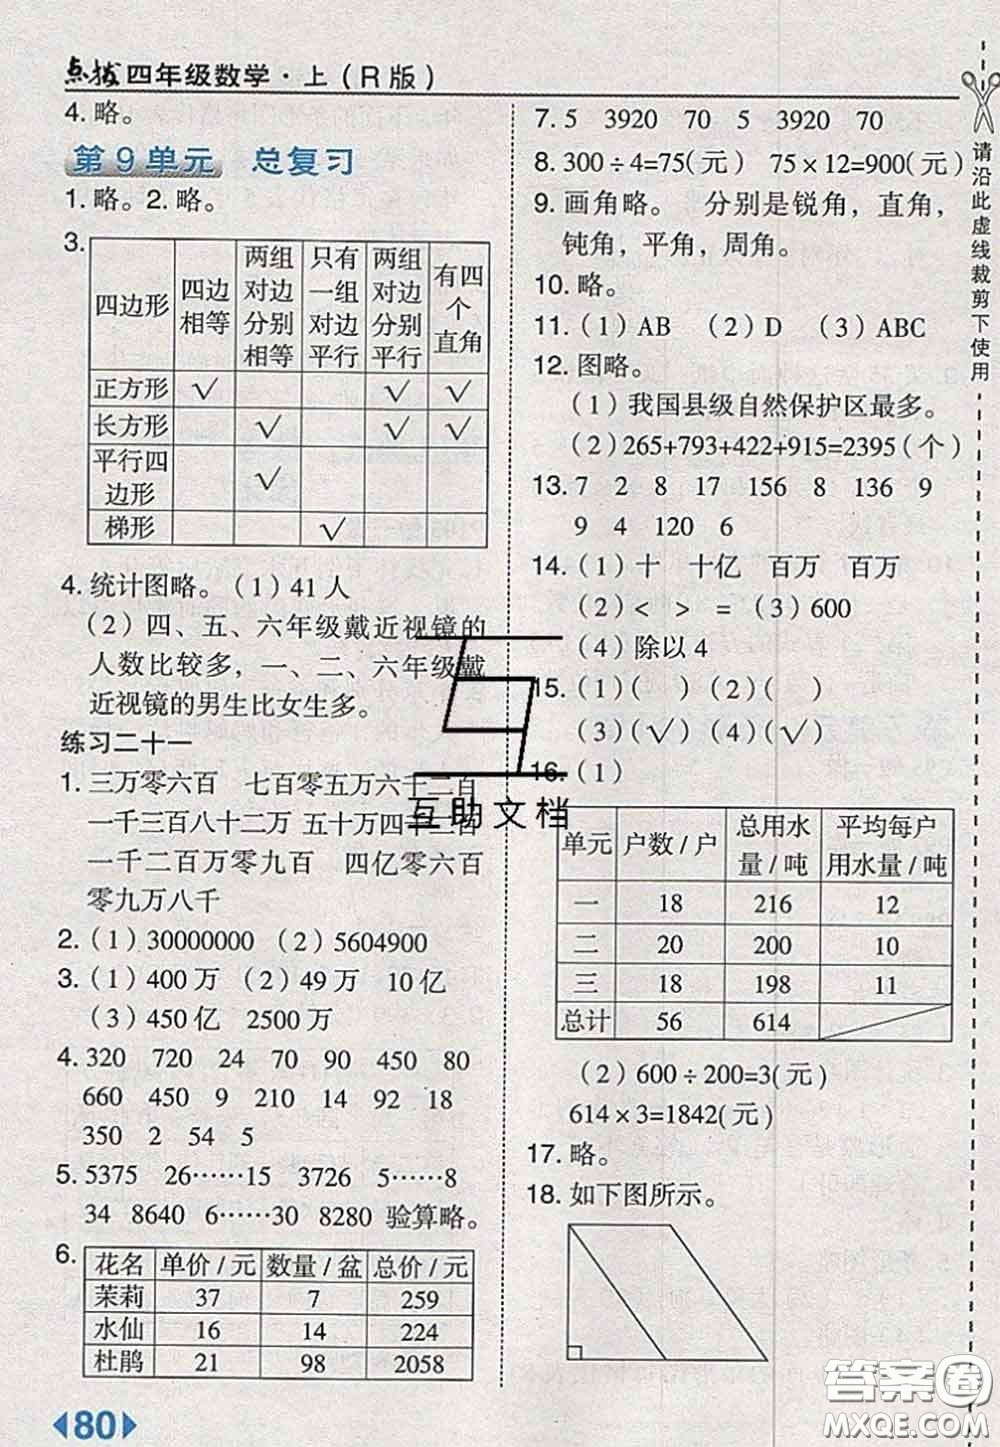 点拨 四年级数学·上(R版)
4. 略。
第9单元 总复习
1. 略。2. 略。
3.
四边形 四边相等 两组对边分别相等 只有一组对边平行 两组对边分别平行 有四个直角
正方形 √ √ √
长方形 √ √ √
平行四边形 √
梯形 √
4. 统计图略。(1)41人
(2)四、五、六年级戴近视镜的
人数比较多，一、二、六年级戴
近视镜的男生比女生多。
练习二十一
1. 三万零六百 七百零五万六千二百
一千三百八十二万 五十万四千三百
一千二百万零九百 四亿零六百
零九万八千
2. (1)30000000 (2)5604900
3. (1)400万 (2)49万 10亿
(3)450亿 2500万
4. 320 720 24 70 90 450 80
660 450 9 210 14 92 18
350 2 54 5
5. 5375 26……15 3726 5……8
34 8640 6……30 8280 验算略。
6.
花名 单价/元 数量/盆 总价/元
茉莉 37 7 259
水仙 16 14 224
杜鹃 21 98 2058
80
7. 5 3920 70 5 3920 70
8. 300÷4=75(元) 75×12=900(元)
9. 画角略。 分别是锐角，直角，
钝角，平角，周角。
10. 略。
11. (1)AB (2)D (3)ABC
12. 图略。
(1)我国县级自然保护区最多。
(2)265+793+422+915=2395(个)
13. 7 2 8 17 156 8 136 9
9 4 120 6
14. (1)十 十亿 百万 百万
(2)< > = (3)600
(4)除以4
15. (1)( ) (2)( )
(3)(√) (4)(√)
16. (1)
单元 户数/户 总用水量/吨 平均每户用水量/吨
一 18 216 12
二 20 200 10
三 18 198 11
总计 56 614
(2)600÷200=3(元)
614×3=1842(元)
17. 略。
18. 如下图所示。
请沿此虚线裁剪下使用
互助文档
答案圈
MXQE.COM